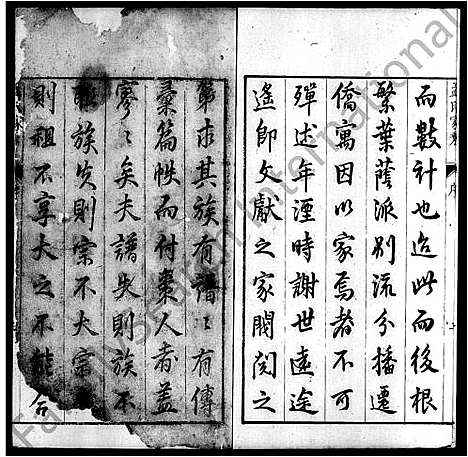 而數計也迨此而後根
繁葉蔭派別流分播遷
僑寓因以家焉者不可
殫述年湮時謝世遠途
遙即文獻之家閥閱之
第求其族有譜〻有傳
彙篇帙而付棗人者蓋
寥〻矣夫譜失則族不
族失則宗不大宗
則祖不享夫之不能合
序
FamilySearch International